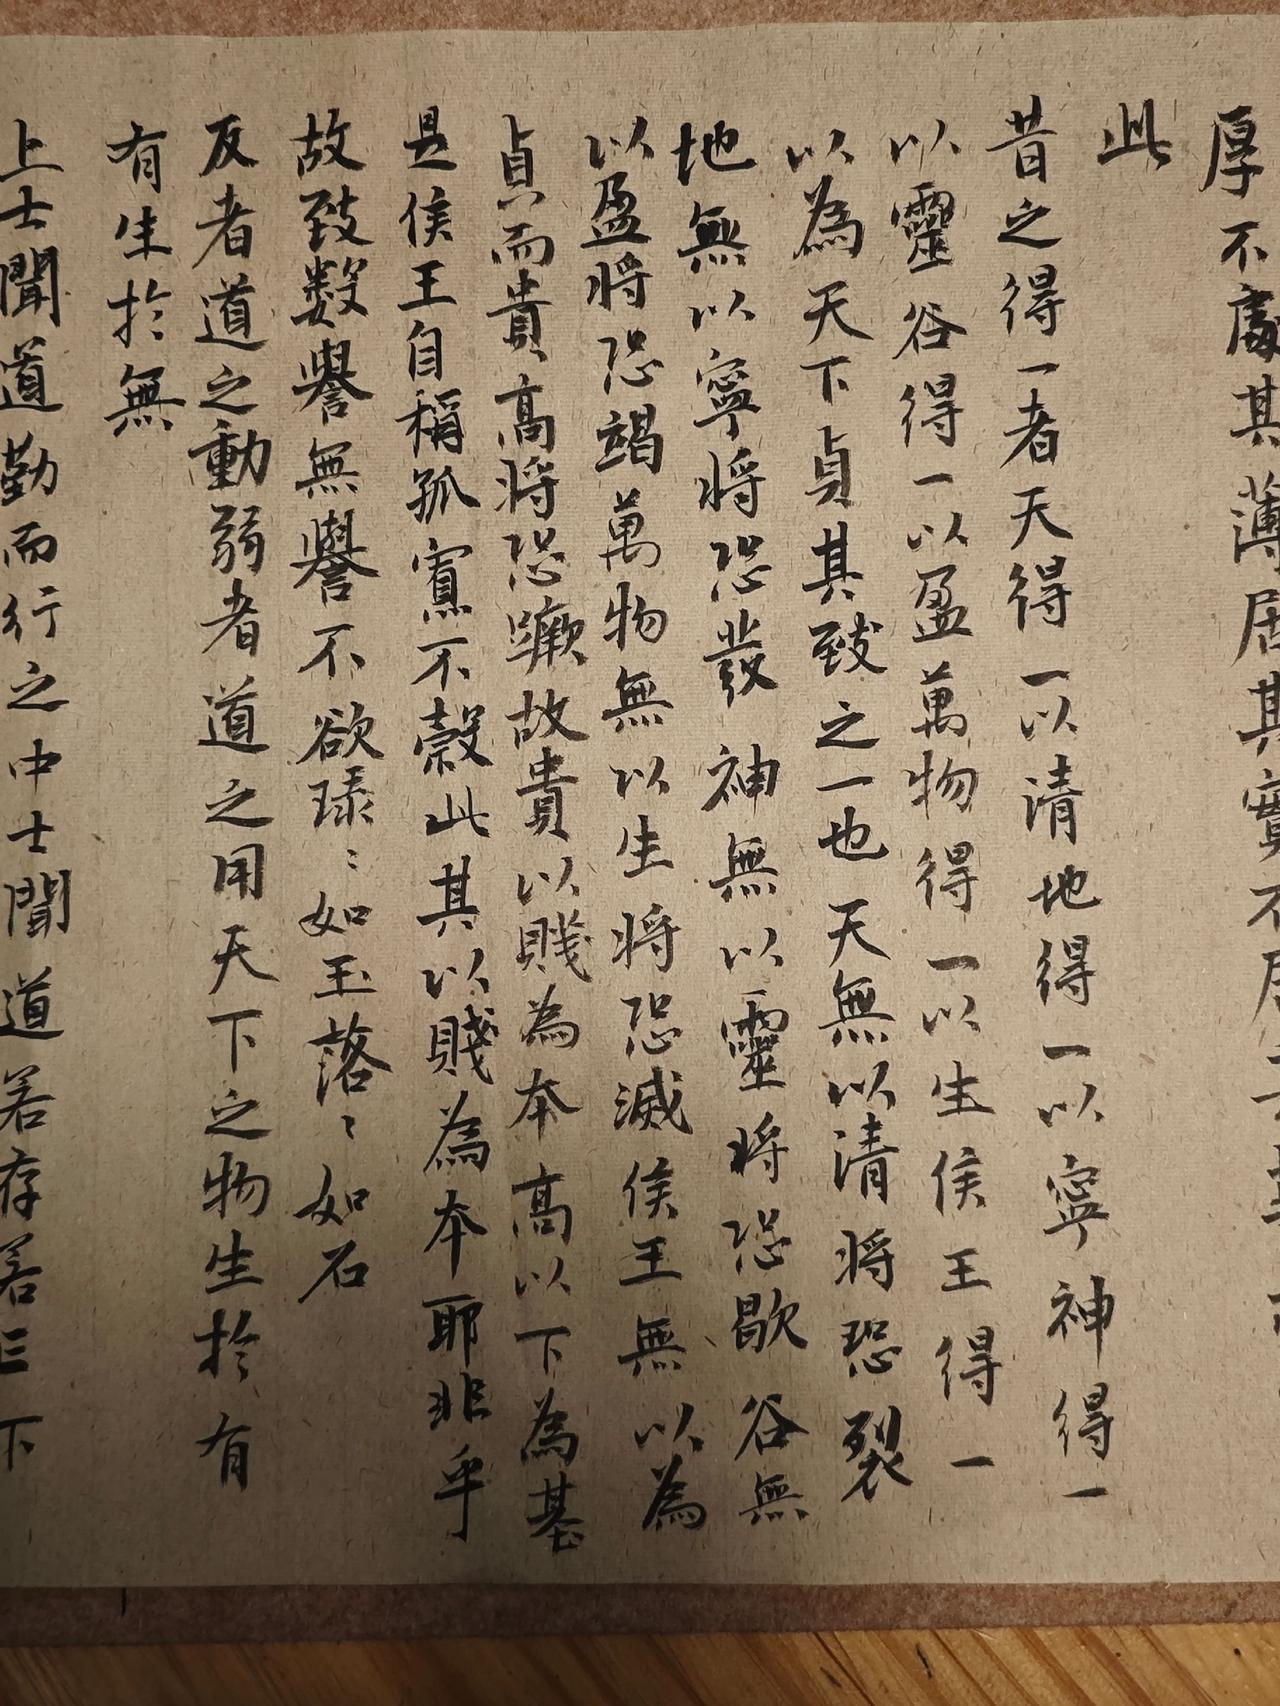 厚不處其薄居其實不居
此
昔之得一者天得一以清地得一以寧神得一
以靈谷得一以盈萬物得一以生侯王得一
以為天下貞其致之一也天無以清將恐裂
地無以寧將恐發神無以靈將恐歇谷無
以盈將恐竭萬物無以生將恐滅侯王無以為
貞而貴高將恐蹶故貴以賤為本高以下為基
是侯王自稱孤寡不穀此其以賤為本耶非乎
故致数譽無譽不欲琭〻如玉落〻如石
反者道之動弱者道之用天下之物生於有
有生於無
上士聞道勤而行之中士聞道若存若亡下